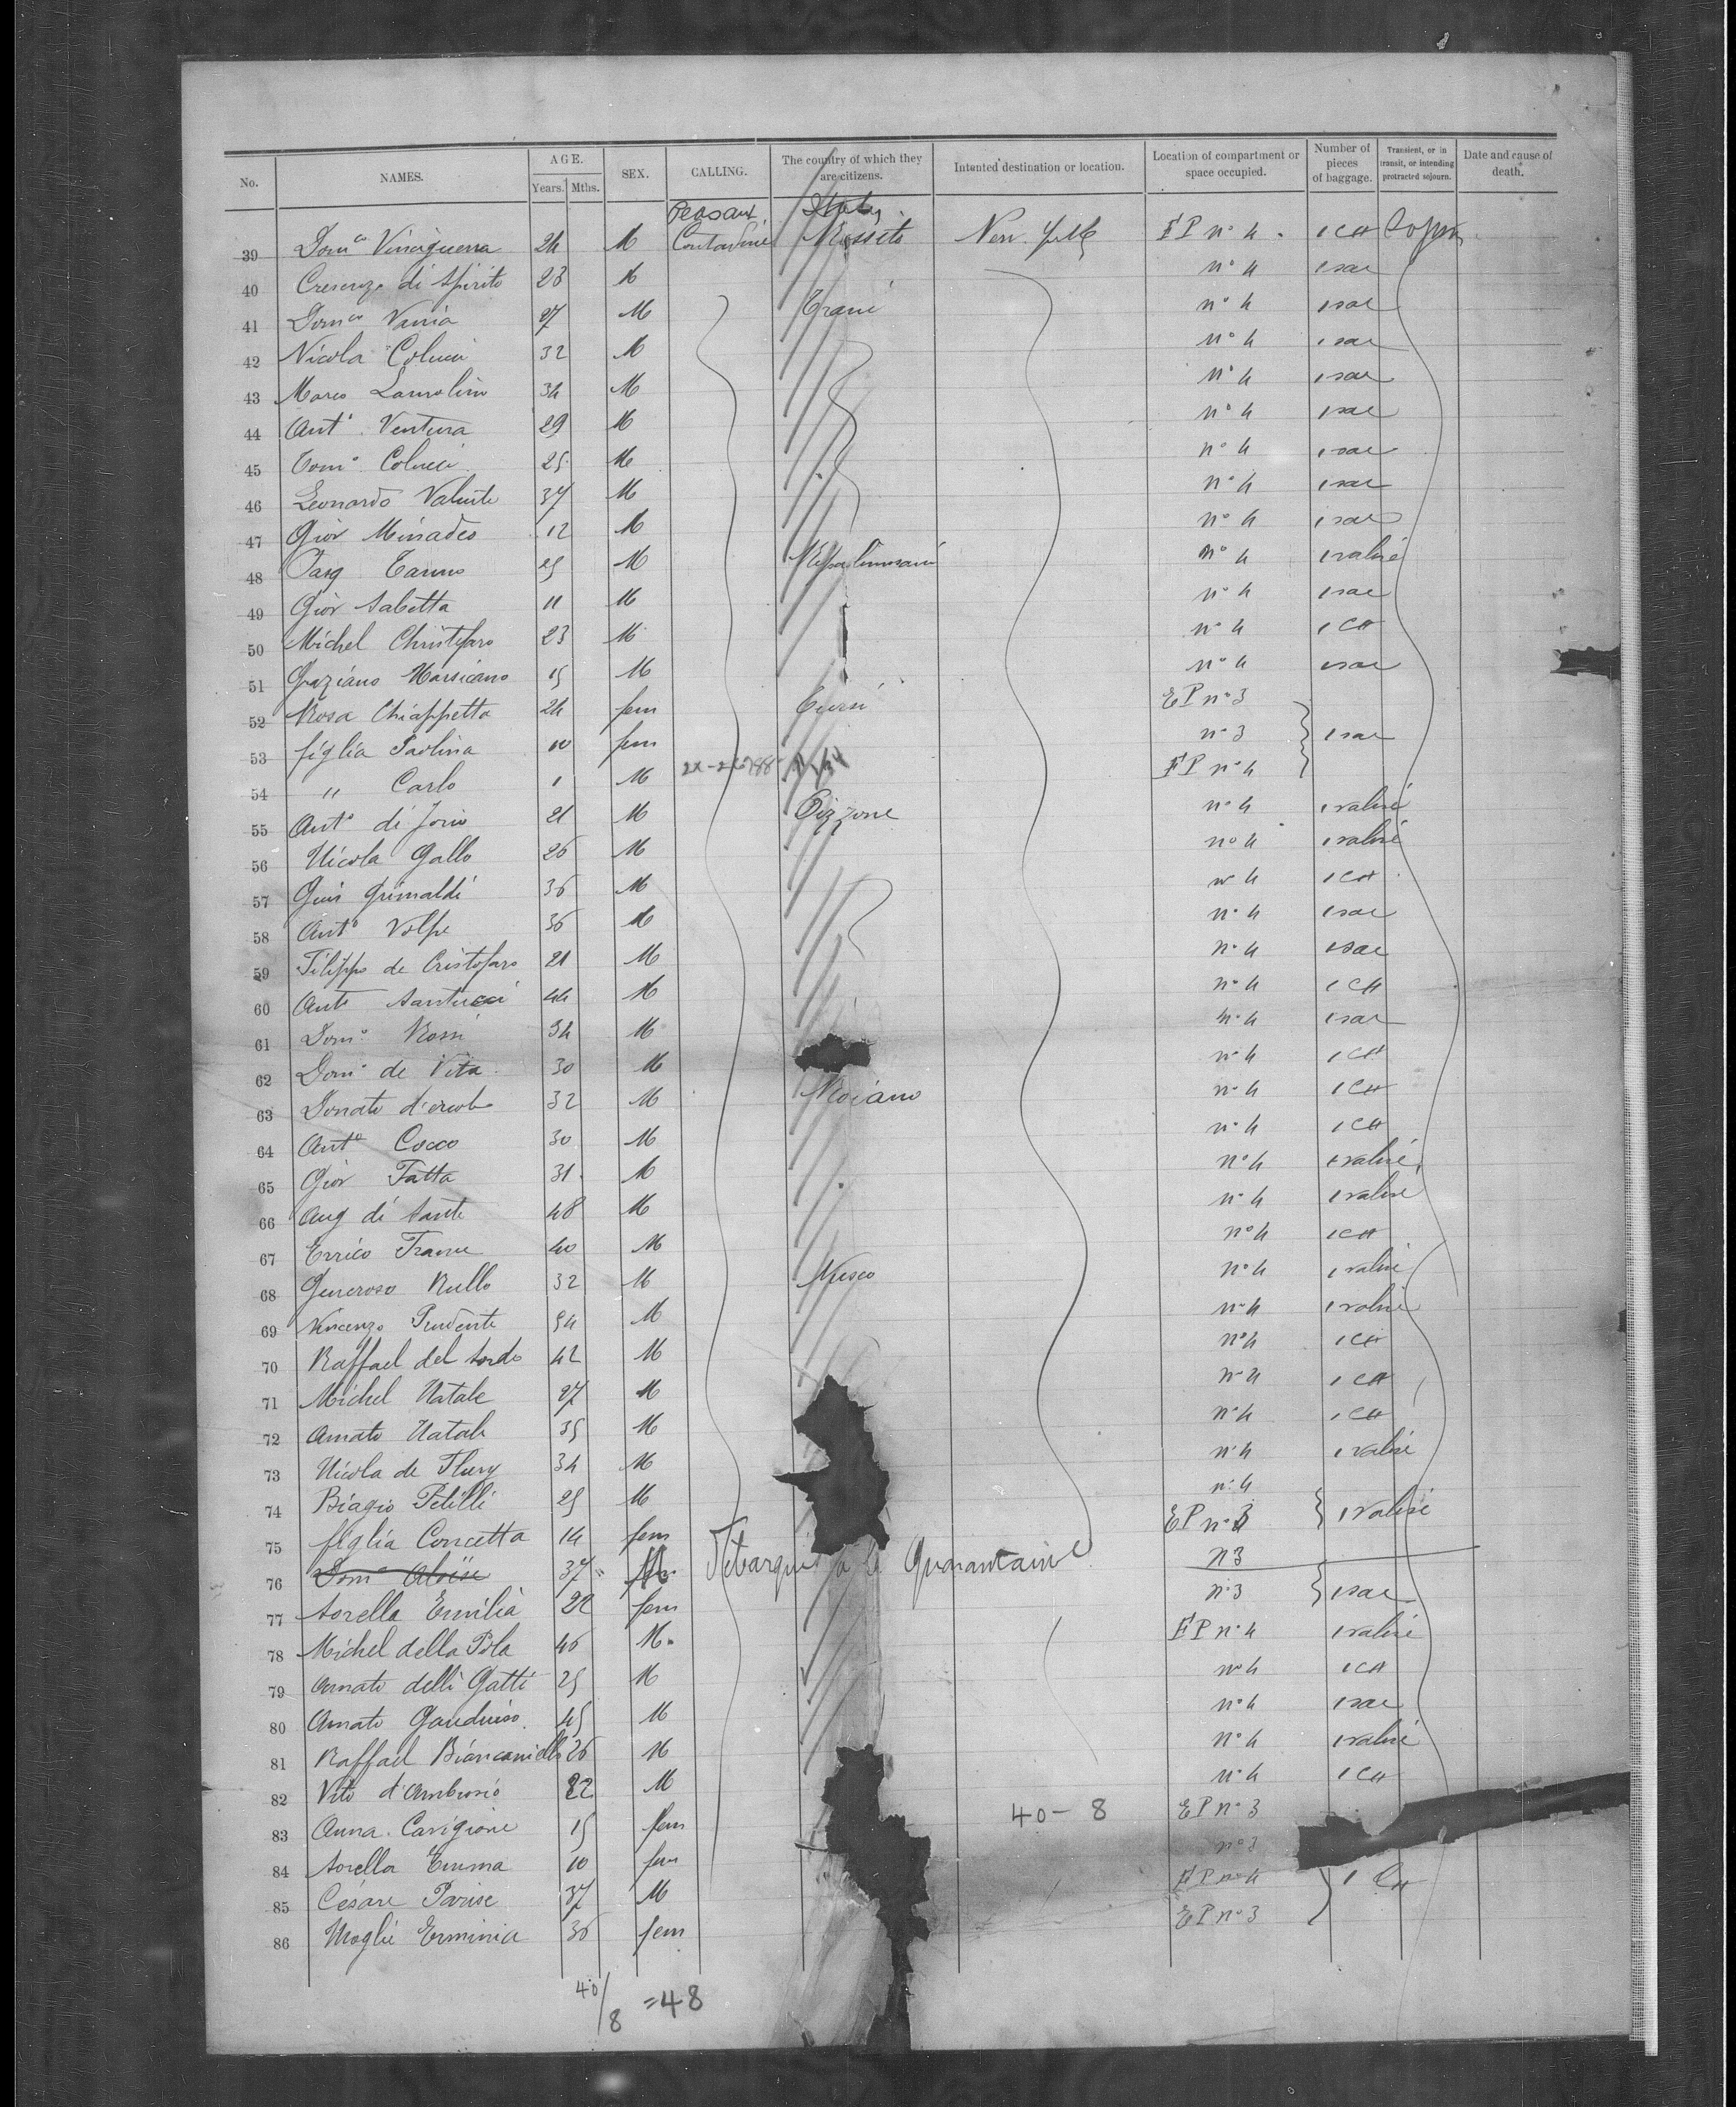 No. NAMES. AGE. Years. Mths. SEX. CALLING. The country of which they are citizens. Intented destination or location. Location of compartment or space occupied. Number of pieces of baggage. Transient, or in transit, or intending protracted sejourn. Date and cause of death.
Peasant Italy
39 Domco Vinciguerra 24 M Contadini New York FP no 4 1 CH
40 di Spirito 23 M no 4 1 sac
41 Domco Vania 27 M Trani no 4 1 sac
42 Nicola Colucci 32 M no 4 1 sac
43 Marco 34 M no 4 1 sac
44 Anto Ventura 29 M no 4 1 sac
45 Tomo Colucci 25 M no 4 1 sac
46 Leonardo Valente 37 M no 4 1 sac
47 Giov 12 M no 4 1 sac
48 Pasq 25 M no 4 1 valise
49 Giov Sabetta 11 M no 4 1 sac
50 Michel Christofaro 23 M no 4 1 CH
51 Graziano Marsicano 15 M no 4 1 sac
52 Rosa Chiappetta 24 fem EP no 3
53 figlia Paolina 10 fem no 3 1 sac
54 " Carlo 1 M FP no 4
55 Anto di Jorio 21 M Pizzone no 4 1 valise
56 Nicola Gallo 26 M no 4 1 valise
57 Grimaldi 36 M no 4 1 CH
58 Anto Volpe 36 M no 4 1 sac
59 Filippo de Cristofaro 21 M no 4 1 sac
60 Anto Santucci 44 M no 4 1 CH
61 Domo Rossi 34 M no 4 1 sac
62 Domo de Vita 30 M no 4 1 CH
63 Donato 32 M no 4 1 CH
64 Anto Cocco 30 M no 4 1 CH
65 Giov Fatta 31 M no 4 1 valise
66 Aug di Sante 48 M no 4 1 valise
67 Errico 40 M no 4 1 CH
68 Generoso Rullo 32 M Nusco no 4 1 valise
69 Vincenzo Prudente 54 M no 4 1 valise
70 Raffael del Sordo 42 M no 4 1 CH
71 Michel Natale 27 M no 4 1 CH
72 Amato Natale 35 M no 4 1 CH
73 Nicola de Flury 34 M no 4 1 valise
74 Biagio Petilli 25 M no 4
75 figlia Concetta 14 fem EP no 3 1 valise
76 Domo Aloise 37 M Debarqué à la Quarantaine n 3
77 Sorella Emilia 22 fem no 3 1 sac
78 Michel della Pola 46 M FP no 4 1 valise
79 Amato delli Gatti 25 M no 4 1 CH
80 Amato 45 M no 4 1 sac
81 Raffael Biancaniello 26 M no 4 1 valise
82 Vito d'Ambrosio 22 M no 4 1 CH
83 Anna Carigione 15 fem 40 - 8 EP no 3
84 Sorella Emma 10 fem no 3
85 Césare Parise 37 M FP no 4 1 CH
86 Moglie Erminia 36 fem EP no 3
40/8 = 48